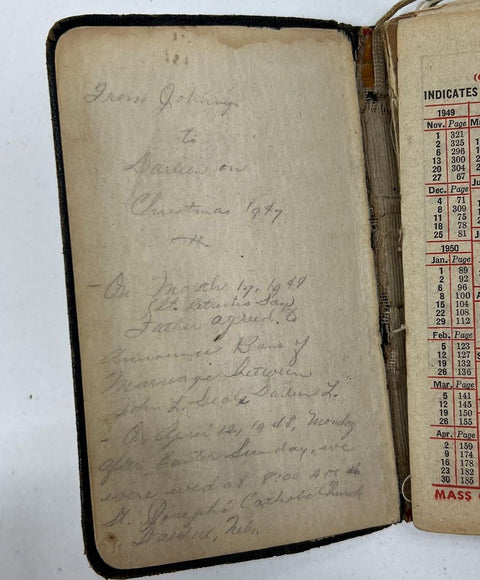 From Johnny
to
Darleen on
Christmas 1947
- On March 17, 1948
St. Patricks Day
Father agreed to
Announce Bans of
Marriage between
John L. & Darleen L.
- On April 12, 1948, Monday
after Easter Sunday, we
were wed at 8:00 A.M. in
St. Joseph's Catholic Church
Neb.
INDICATES
1949
Nov. Page
1 321
2 325
6 296
13 300
20 304
27 67
Dec. Page
4 71
8 309
11 75
18 78
25 81
1950
Jan. Page
1 89
2 92
6 96
8 100
15 104
22 108
29 112
Feb. Page
5 123
12 127
19 132
26 136
Mar. Page
5 141
12 145
19 150
26 155
Apr. Page
2 159
9 174
16 178
23 182
30 185
MASS